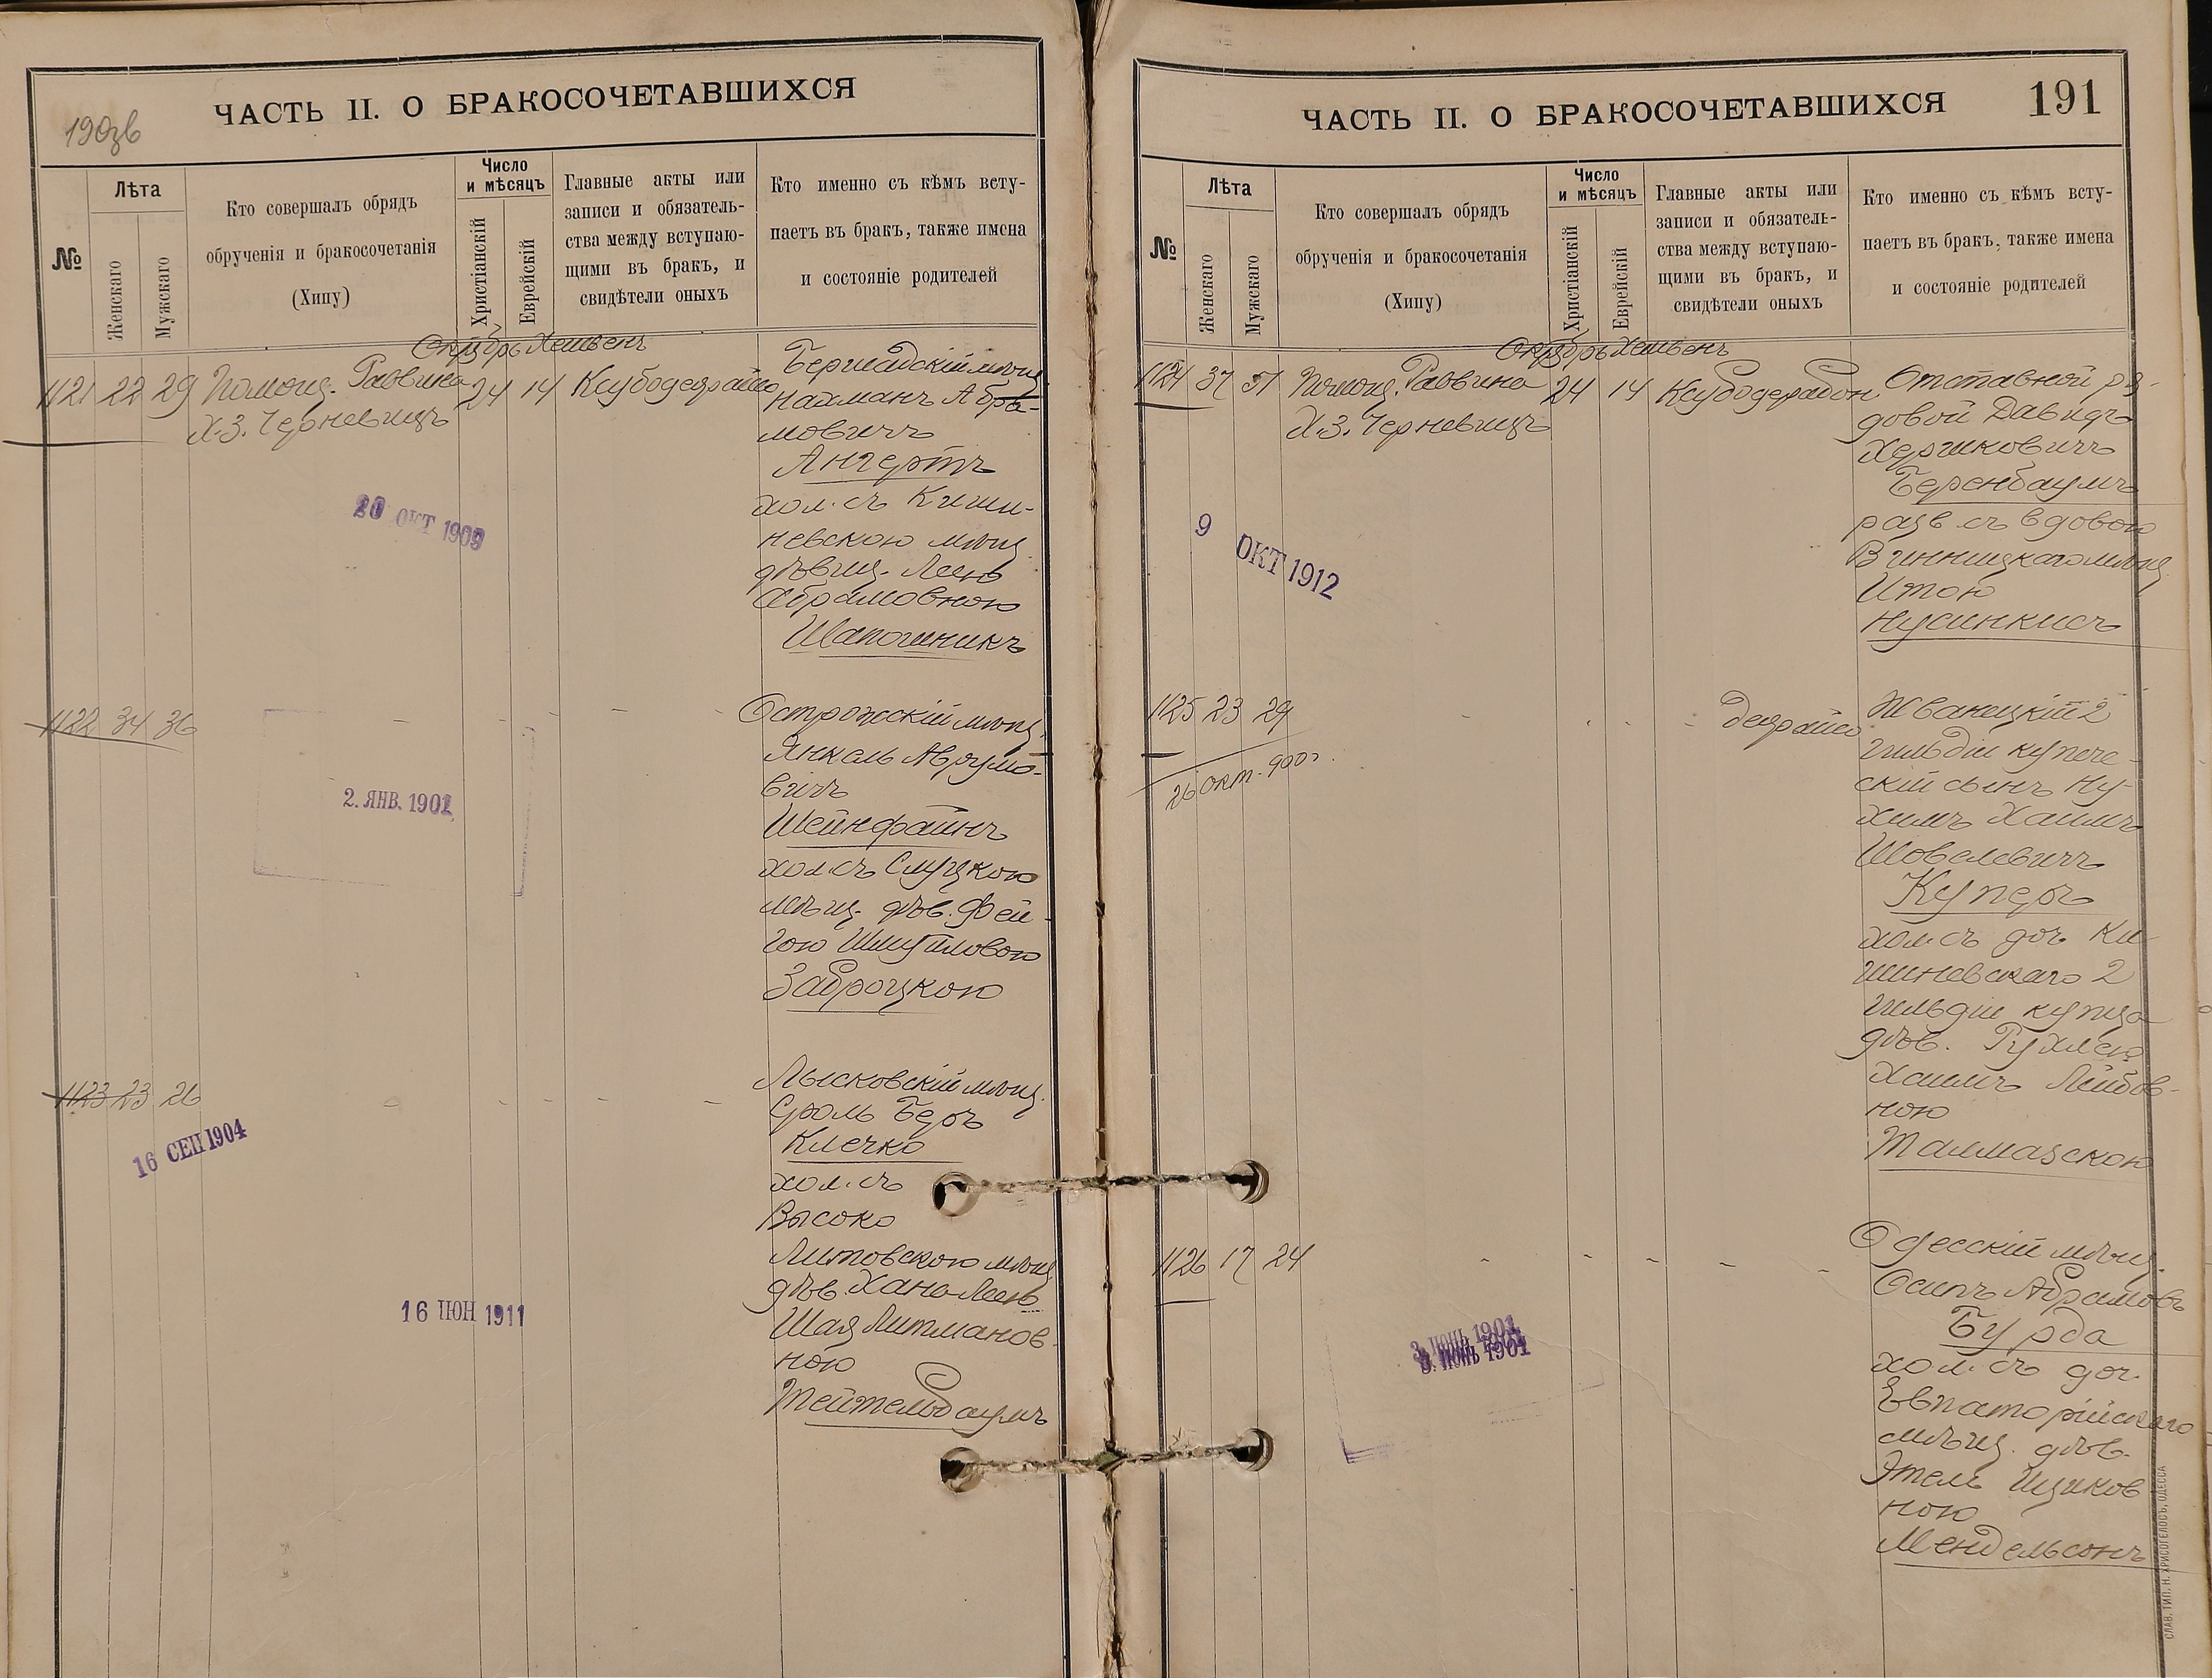 190зв
ЧАСТЬ II. О БРАКОСОЧЕТАВШИХСЯ
№
Лѣта
Женскаго
Мужскаго
Кто совершалъ обрядъ
обрученія и бракосочетанія
(Хипу)
Число
и мѣсяцъ
Христіанскій
Еврейскій
Главные акты или
записи и обязатель-
ства между вступаю-
щими въ бракъ, и
свидѣтели оныхъ
Кто именно съ кѣмъ всту-
паетъ въ бракъ, также имена
и состояніе родителей
Октябрь Хешвенъ
1121 22 29 Помощ. Раввина 24 14
Х.З. Черневицъ
Бершадскій мѣщ.
Нахманъ Абра-
мовичъ
Ангертъ
хол. съ Киши-
невскою мѣщ.
дѣвиц. Леею
Абрамовною
Шапошникъ
20 ОКТ 1909
1122 34 36 - - - -
Острожскій мѣщ.
Янкель Аврумо-
вичъ
Шейнфайнъ
хол. съ Слуцкою
мѣщ. дѣв. Фей-
гою Шмуйловою
Заброцкою
2. ЯНВ. 1901
1123 23 26 - - - -
Лысковскій мѣщ.
Сроль Беръ
Клечко
хол. съ
Высоко
Литовскою мѣщ.
дѣв. Хана Леею
Шая Литманов-
ною
Тейтельбаумъ
16 СЕН 1904
16 ІЮН 1911
ЧАСТЬ II. О БРАКОСОЧЕТАВШИХСЯ
191
№
Лѣта
Женскаго
Мужскаго
Кто совершалъ обрядъ
обрученія и бракосочетанія
(Хипу)
Число
и мѣсяцъ
Христіанскій
Еврейскій
Главные акты или
записи и обязатель-
ства между вступаю-
щими въ бракъ, и
свидѣтели оныхъ
Кто именно съ кѣмъ всту-
паетъ въ бракъ, также имена
и состояніе родителей
Октябрь Хешвенъ
1124 37 51 Помощ. Раввина 24 14
Х.З. Черневицъ
Отставной ря-
довой Давидъ
Хершковичъ
Беренбаумъ
разв. съ вдовою
Винницкаго мѣщ.
Итою
Нусинкисъ
9 ОКТ 1912
1125 23 29 - - -
26 окт. 900 г.
Жванецкій 2
гильдіи купече-
скій сынъ Ну-
химъ Хаимъ
Шовелевичъ
Куперъ
хол. съ доч. Ки-
шиневскаго 2
гильдіи купца
дѣв. Рухлею
Хаимъ Лейбов-
ною
Талмазскою
1126 17 24 - - - -
Одесскій мѣщ.
Осипъ Абрамовъ
Бурда
хол. съ доч.
Евпаторійскаго
мѣщ. дѣв.
Этель Ициков
ною
Мендельсонъ
3. ІЮНЬ 1901
3. ІЮНЬ 1901
СЛАВ. ТИП. Н. ХРИСОГЕЛОСЪ, ОДЕССА